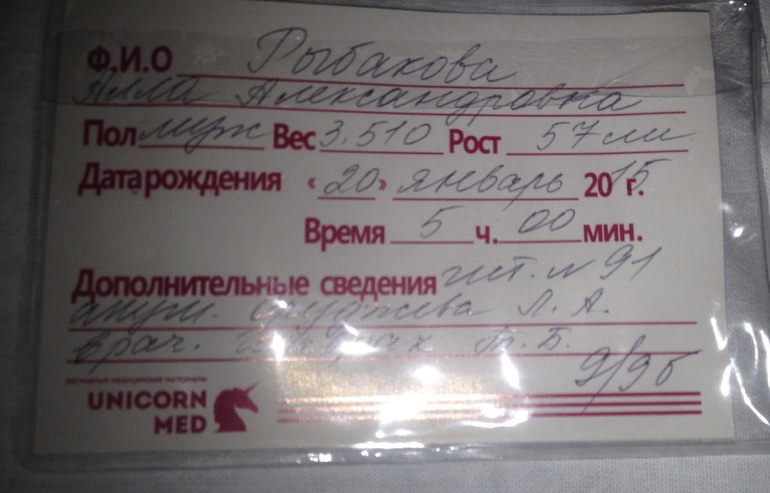 Ф.И.О Рыбакова
Алла Александровна
Пол муж Вес 3.510 Рост 57 см
Дата рождения «20» январь 2015 г.
Время 5 ч. 00 мин.
Дополнительные сведения ист. N 91
акуш. Л. А.
врач. Б.
9/9б
расходные медицинские материалы
UNICORN
MED